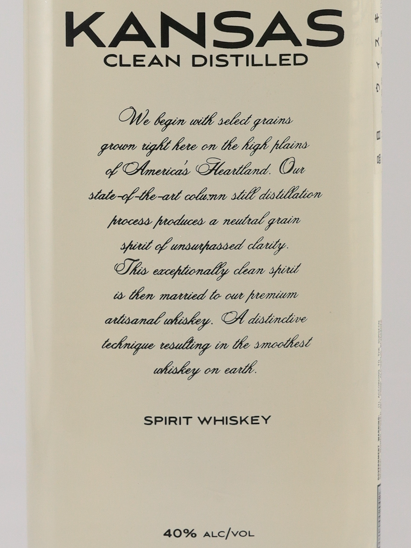 KANSAS
CLEAN DISTILLED
We begin with select grains
grown right here on the high plains
of America's Heartland. Our
state-of-the-art column still distillation
process produces a neutral grain
spirit of unsurpassed clarity.
This exceptionally clean spirit
is then married to our premium
artisanal whiskey. A distinctive
technique resulting in the smoothest
whiskey on earth.
SPIRIT WHISKEY
40% ALC/VOL